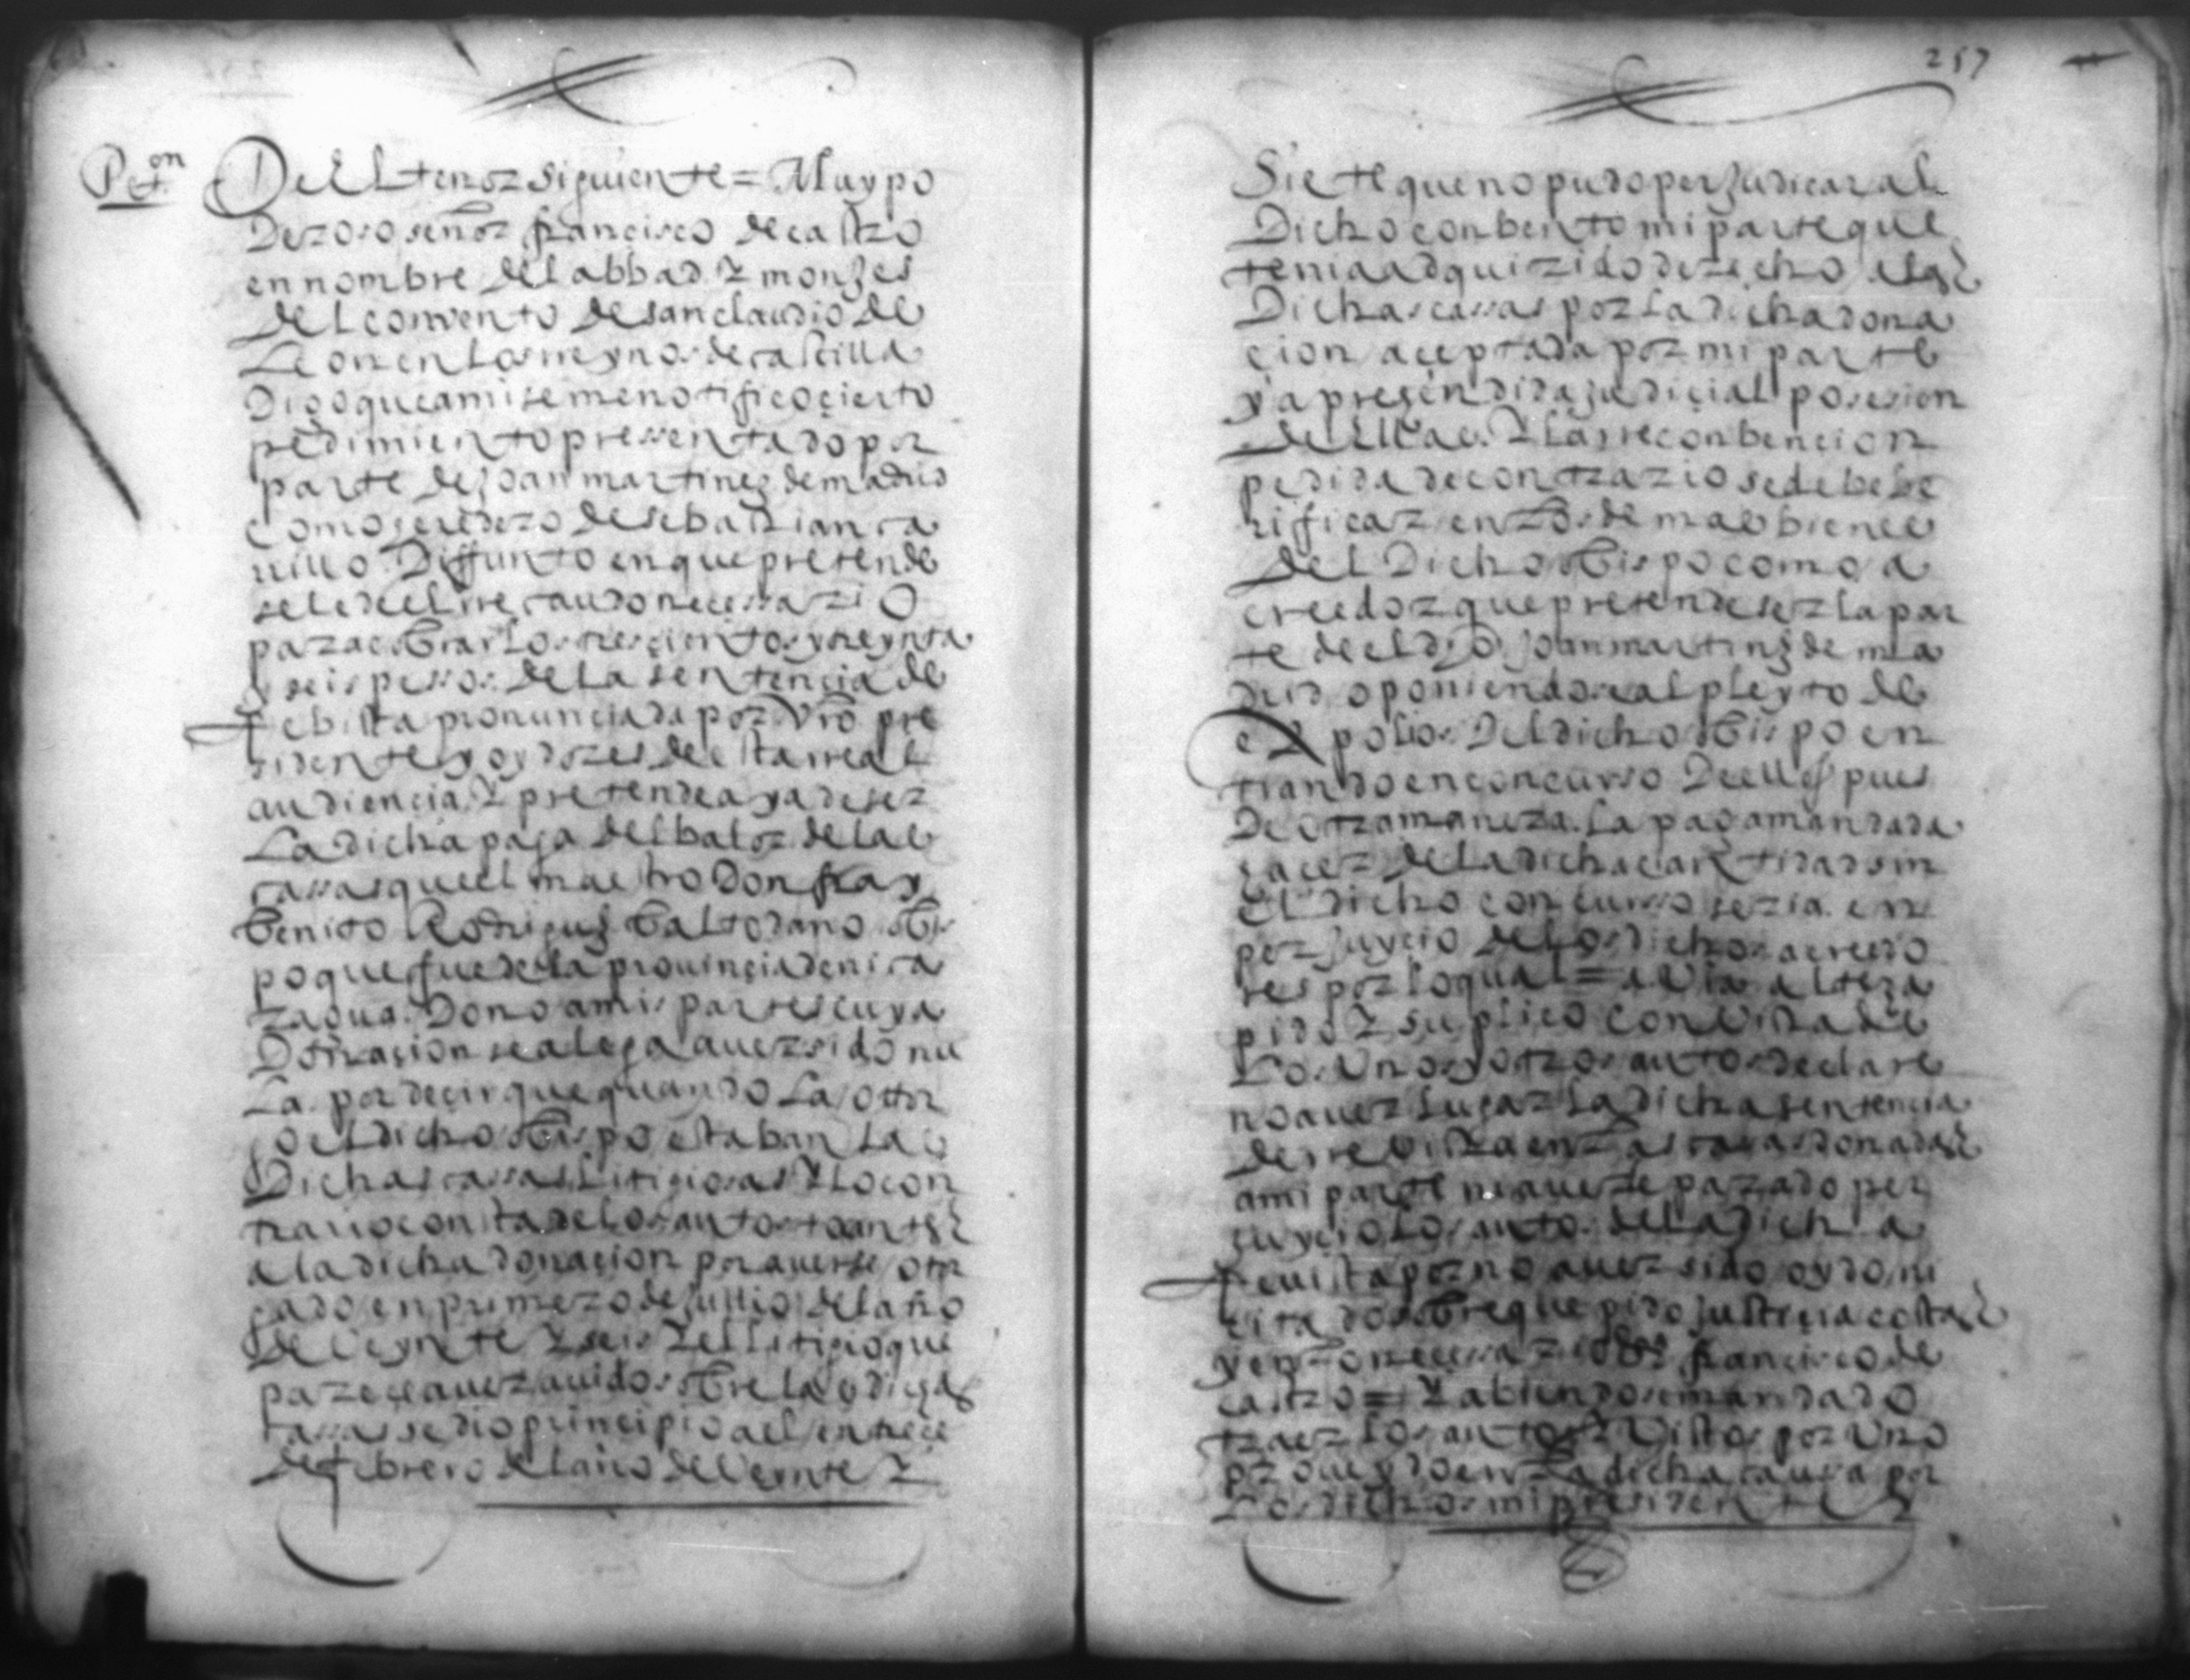 Pet.on
Del tenor siguiente = Muy po
Deroso señor francisco de castro
en nombre del abbad y monges
del convento de san claudio de
Leon en los rreynos de castilla
Digo que a mi se me notifico cierto
pedimiento pressentado por
parte de joan martinez de madrid
como heredero de sebastian ca
rrillo Diffunto en que pretende
se le de el rrecaudo necessario
para cobrar los trescientos y treynta
y seis pessos de la sentencia de
rrebista pronunciada por vro pre
sidente y oydores de esta rreal
audiencia y pretende aya de ser
La dicha paga del balor de las
cassas que el maestro Don fray
benito Rodriguez baltodano obis
po que fue de la provincia de nica
ragua. Dono a mis partes cuya
Donacion se alega aver sido nu
La por decir que quando La otor
go el dicho obispo estaban las
Dichas cassas Litigiosas y Lo con
trario consta de Los autos to antes
a la dicha donacion por averse otor
gado en primero de jullio del año
de veynte y seis y el Litigio que
parece aver avido sobre las dichas
cassas se dio principio a el en trece
de febrero del año de veynte y
257
Siete que no pudo perjudicar al
Dicho conbento mi parte que
tenia adquirido derecho a las
Dichas cassas por La dicha dona
cion aceptada por mi parte
y aprehendida judicial posesion
de ellas. y la rreconbencion
pedida de contrario se debe be
rificar en los demas bienes
del Dicho obispo como a
creedor que pretende ser la par
te de el dho joan martinz de ma
drid oponiendose al pleyto de
espolios Del dicho obispo en
trando en concurso De ellos pues
De otra manera. La paga mandada
hacer de la dicha cantidad sin
el dicho concurso seria en
perjuycio de los dichos acreedo
res por lo qual = a Vra alteza
pido y suplico con vista de
Los unos y otros autos declare
no aver lugar La dicha sentencia
de rrevista en las casas donadas
a mi parte ni averle parado per
juycio Los autos de la dicha
rrevista por no aver sido oydo ni
citado sobre que pido justicia costas
y en lo necessario francisco de
castro = y abiendose mandado
traer los autos y vistos por uno
proveydo en la dicha causa por
Los dichos mi presidente y